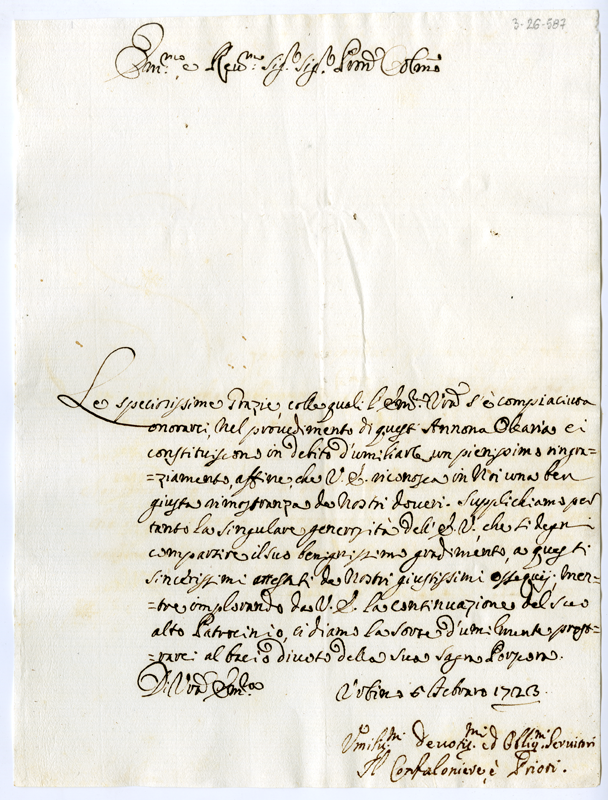 3-26-587
Em.mo e Rev.mo Sig.r Sig.r Pron Colmo
Le speciosissime Grazie, colle quali l'Em: Vra s'è compiaciuta
onorarci, nel provedimento di questi Annona Olearia ci
constituiscono in debito d'umiliarle un pienissimo ringra=
=ziamento, affine, che V. E. riconosca in Noi una ben
giusta rimostranza de Nostri doveri. Supplichiamo per
tanto la singulare generosità dell'E. V. che si degni
compartire il suo benignissimo gradimento, a questi
sincerissimi attestati de Nostri giustissimi ossequij. Men=
=tre implorando da V. E. la continuazione del suo
alto Patrocinio, ci diamo la sorte d'umilmente prost=
=rarci al bacio divoto della sua Sagra Porpora.
Di Vra Em.za Urbino 6 Febraro 1723.
Umilis.mi Devotis.mi ed Oblig.mi Servitori
Il Confaloniere, e Priori.